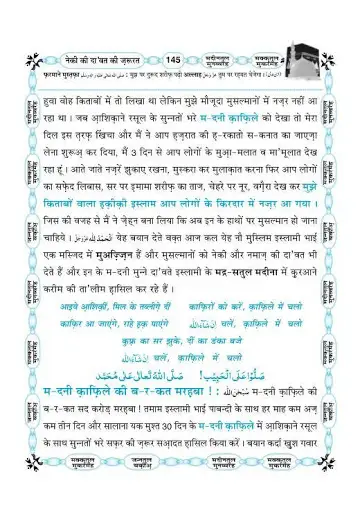 नेकी की दा'वत की ज़रूरत
145
मदीनतुल मुनव्वरह
मक्कतुल मुकर्रमह
फ़रमाने मुस्तफ़ा صلى الله عليه وسلم : मुझ पर दुरूद शरीफ़ पढ़ो अल्लाह عزوجل तुम पर रहमत भेजेगा।
हुवा वोह किताबों में तो लिखा था लेकिन मुझे मौजूदा मुसल्मानों में नज़र नहीं आ
रहा था। जब आ़शिक़ाने रसूल के सुन्नतों भरे म-दनी क़ाफ़िले को देखा तो मेरा
दिल इस त़रफ़ खिंचा और मैं ने आप हज़रात की ह़-रकातो स-कनात का जाएज़ा
लेना शुरूअ़ कर दिया, मैं 3 दिन से आप लोगों के मुआ़-मलात व मा'मूलात देख
रहा हूं। आते जाते नज़रें झुकाए रखना, मुस्करा कर मुलाक़ात करना फिर आप लोगों
का सफ़ेद लिबास, सर पर इमामा शरीफ़ का ताज, चेहरे पर नूर, वग़ैरा देख कर मुझे
किताबों वाला ह़क़ीक़ी इस्लाम आप लोगों के किरदार में नज़र आ गया।
जिस की वजह से मैं ने ज़ेह्न बना लिया कि अब इन के हाथों पर मुसल्मान हो जाना
चाहिये। اَلْحَمْدُ لِلّٰه عَزَّوَجَلَّ येह बयान देते वक़्त आन कल येह नौ मुस्लिम इस्लामी भाई
एक मस्जिद में मुअज़्ज़िन हैं और मुसल्मानों को नेकी और नमाज़ की दा'वत भी
देते हैं और इन के म-दनी मुन्ने दा'वते इस्लामी के मद्र-सतुल मदीना में क़ुरआने
करीम की ता'लीम ह़ासिल कर रहे हैं।
आइये आ़शिक़ीं, मिल के तब्लीग़े दीं काफ़िरों को करें, क़ाफ़िले में चलो
काफ़िर आ जाएंगे, राहे ह़क़ पाएंगे اِنْ شَآءَ اللّٰه चलें, क़ाफ़िले में चलो
कुफ़्र का सर झुके, दीं का डंका बजे
اِنْ شَآءَ اللّٰه चलें, क़ाफ़िले में चलो
صَلُّوا عَلَى الْحَبِيْب! صَلَّى اللهُ تَعَالٰى عَلٰى مُحَمَّد
म-दनी क़ाफ़िले की ब-र-कत मरह़बा ! : سُبْحٰنَ اللّٰه म-दनी क़ाफ़िले की
ब-र-कत सद करोड़ मरह़बा ! तमाम इस्लामी भाई पाबन्दी के साथ हर माह कम अज़
कम तीन दिन और सालाना यक मुश्त 30 दिन के म-दनी क़ाफ़िले में आ़शिक़ाने रसूल
के साथ सुन्नतों भरे सफ़र की ज़रूर सआ़दत ह़ासिल किया करें। बयान कर्दा ख़ुश गवार
मक्कतुल मुकर्रमह
जन्नतुल बक़ीअ़
मदीनतुल मुनव्वरह
मक्कतुल मुकर्रमह